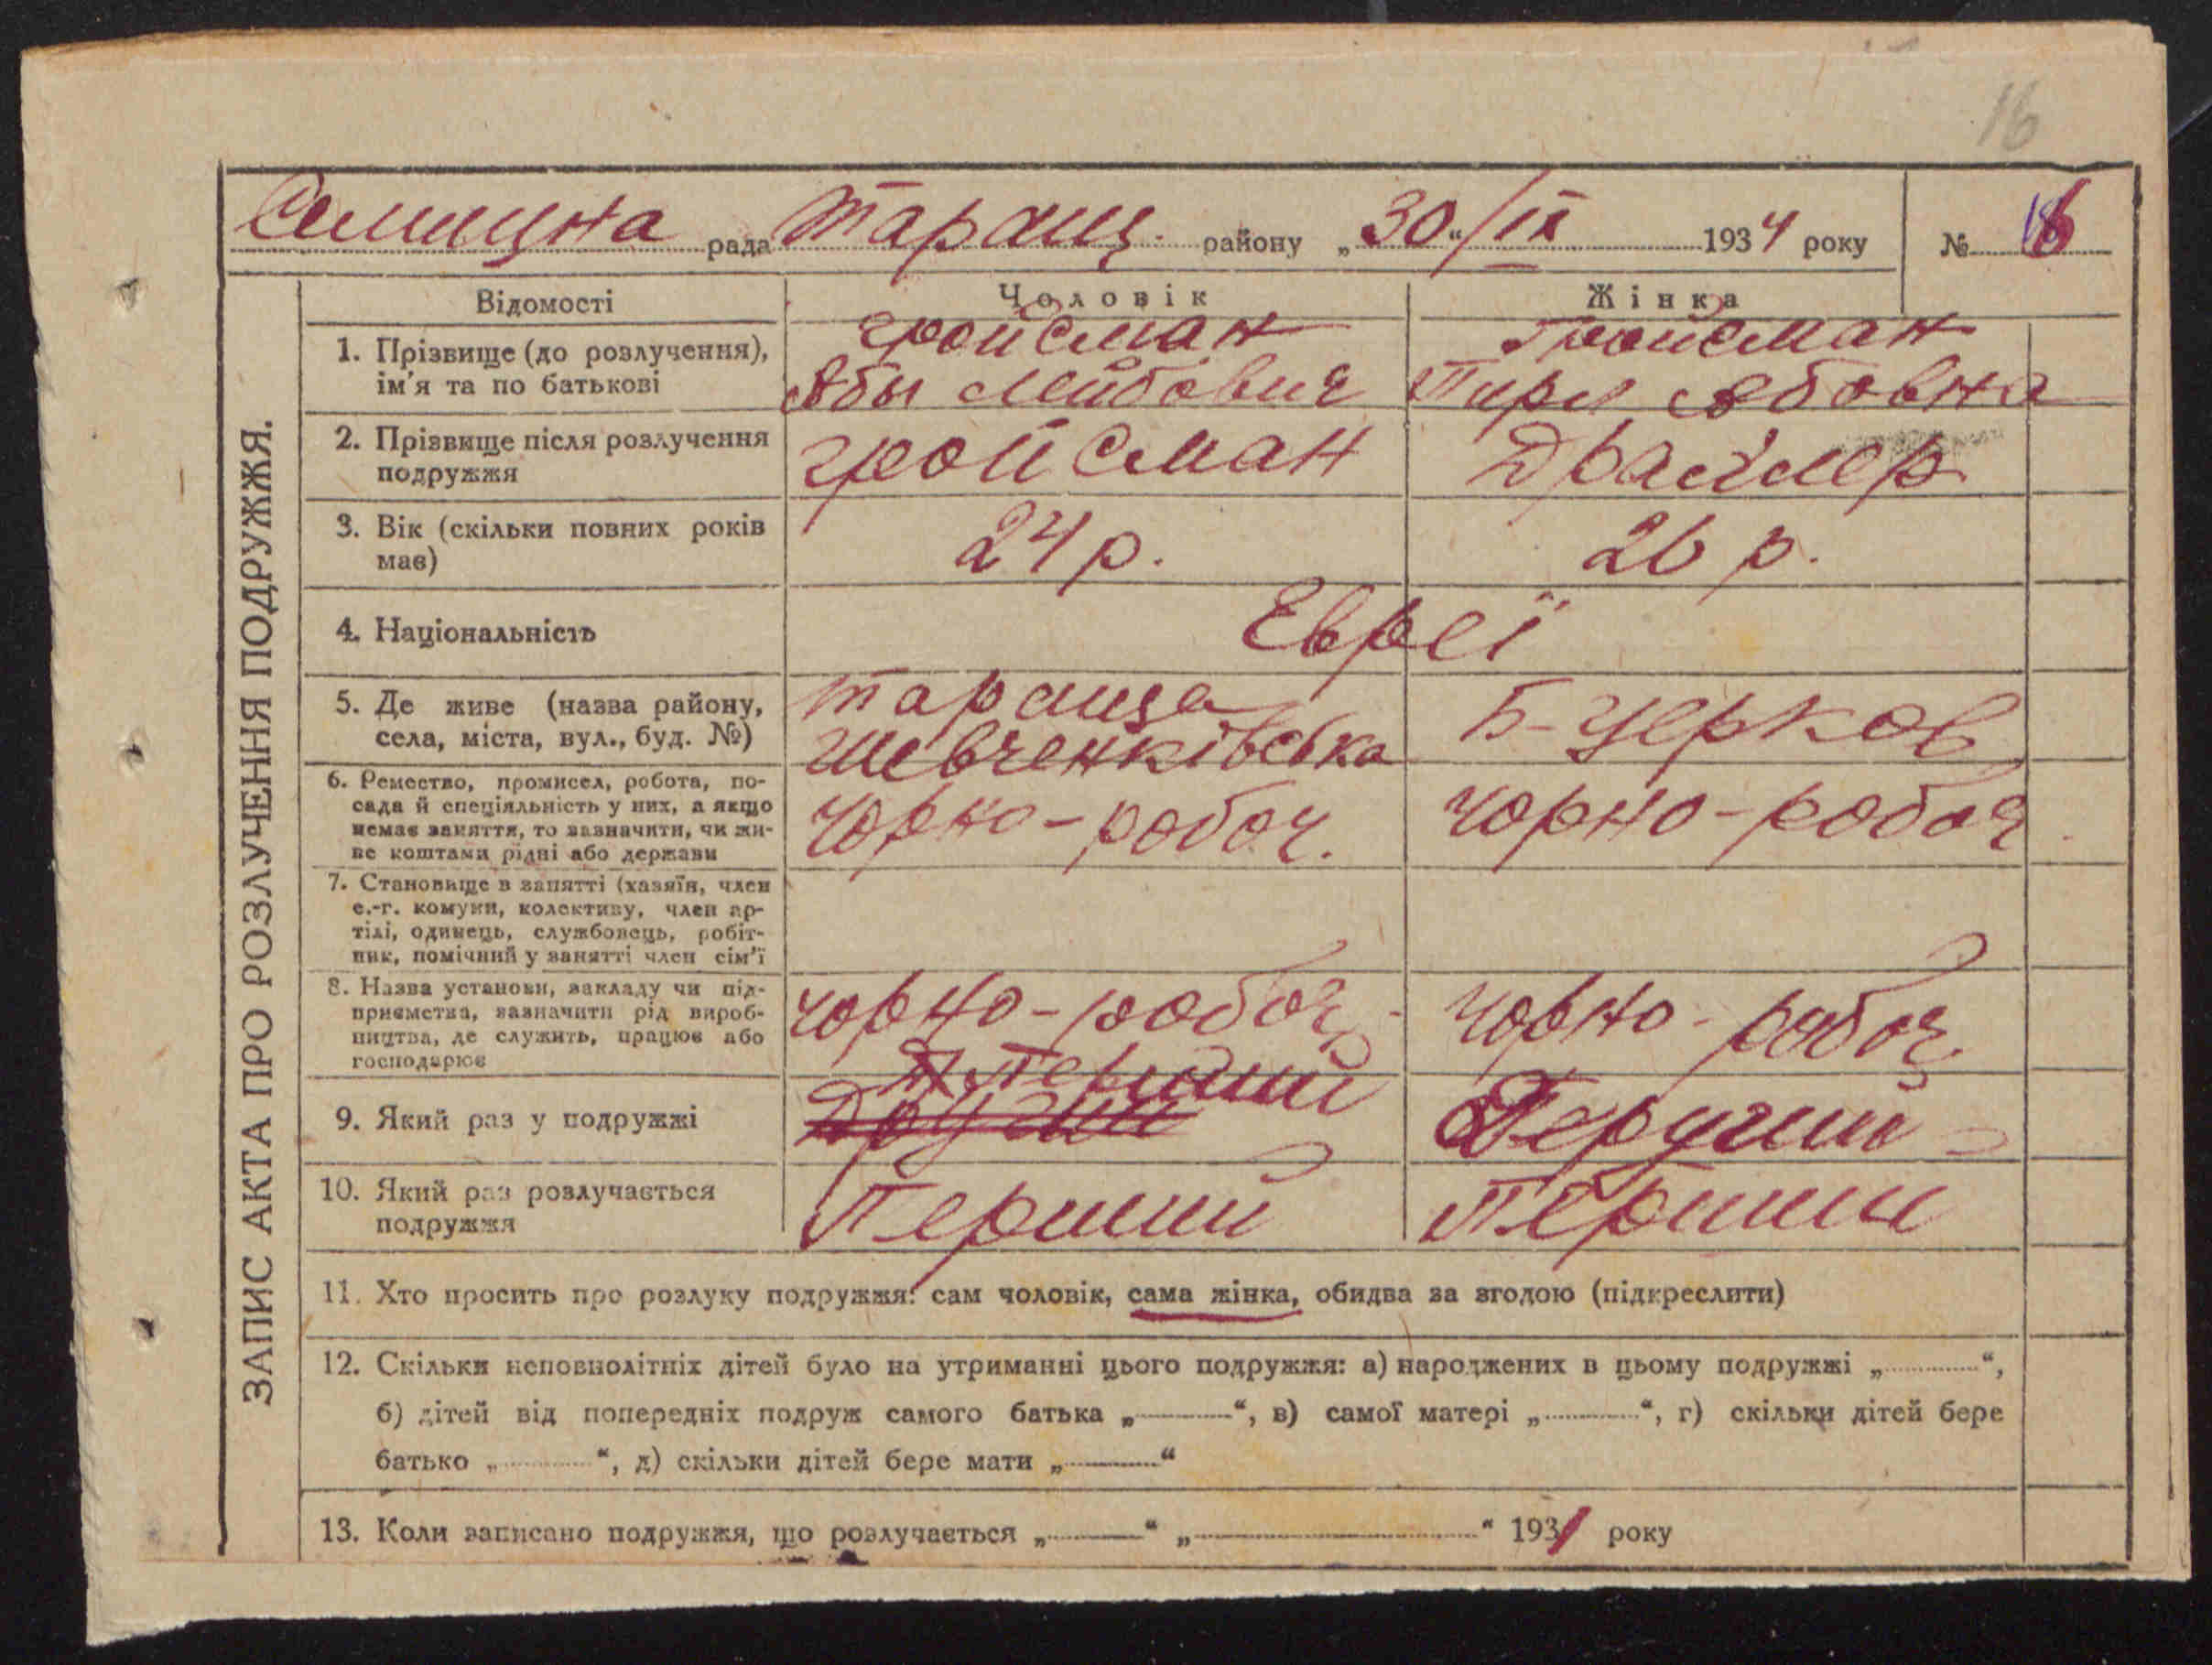 16
Селищна рада Таращ. району „30“/IX 1934 року № 16
ЗАПИС АКТА ПРО РОЗЛУЧЕННЯ ПОДРУЖЖЯ.
Відомості Чоловік Жінка
1. Прізвище (до розлучення), ім'я та по батькові
Гройсман
Абы Лейбович
Гройсман
Пирл Абовна
2. Прізвище після розлучення
подружжя
Гройсман
Драйлер
3. Вік (скільки повних років
має)
24 р.
26 р.
4. Національність
Евреї
5. Де живе (назва району,
села, міста, вул., буд. №)
Тараща
Шевченківська
Б-Церков
6. Ремество, промисел, робота, по-
сада й спеціяльність у них, а якщо
немає заняття, то зазначити, чи жи-
ве коштами рідні або держави
Чорно-робоч.
Чорно-робоч
7. Становище в занятті (хазяїн, член
с.-г. комуни, колективу, член ар-
тілі, одинець, службовець, робіт-
ник, помічний у занятті член сім'ї
8. Назва установи, закладу чи під-
приємства, зазначити рід вироб-
ництва, де служить, працює або
господарює
Чорно-робоч.
Чорно-робоч
9. Який раз у подружжі
Перший
Другий
10. Який раз розлучається
подружжя
Перший
Перший
11. Хто просить про розлуку подружжя: сам чоловік, сама жінка, обидва за згодою (підкреслити)
12. Скільки неповнолітніх дітей було на утриманні цього подружжя: а) народжених в цьому подружжі „ “,
б) дітей від попередніх подруж самого батька „ “, в) самої матері „ “, г) скільки дітей бере
батько „ “, д) скільки дітей бере мати „ “
13. Коли записано подружжя, що розлучається „ “ „ “ 1931 року